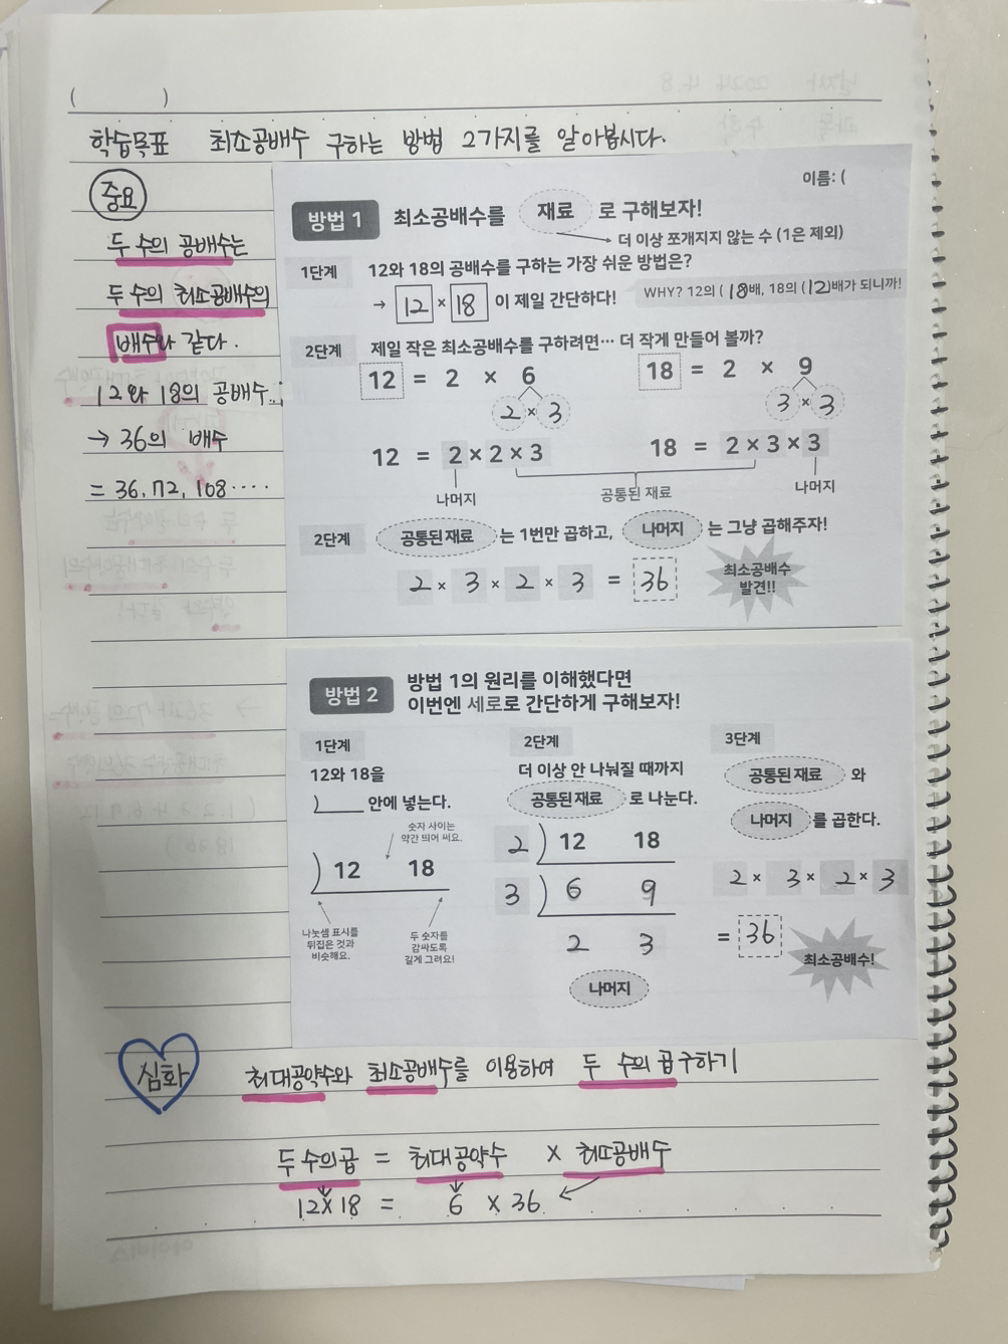 (          )
학습목표 최소공배수 구하는 방법 2가지를 알아봅시다.
중요
두 수의 공배수는
두 수의 최소공배수의
배수와 같다.
12와 18의 공배수..;
→ 36의 배수
= 36, 72, 108 ····
이름: (
방법 1 최소공배수를 재료 로 구해보자!
더 이상 쪼개지지 않는 수 (1은 제외)
1단계 12와 18의 공배수를 구하는 가장 쉬운 방법은?
→ 12 × 18 이 제일 간단하다! WHY? 12의 (18배, 18의 (12)배가 되니까!
2단계 제일 작은 최소공배수를 구하려면… 더 작게 만들어 볼까?
12 = 2 × 6 18 = 2 × 9
2 × 3 3 × 3
12 = 2 × 2 × 3 18 = 2 × 3 × 3
나머지 공통된 재료 나머지
2단계 공통된 재료 는 1번만 곱하고, 나머지 는 그냥 곱해주자!
2 × 3 × 2 × 3 = 36
최소공배수
발견!!
방법 2 방법 1의 원리를 이해했다면
이번엔 세로로 간단하게 구해보자!
1단계
12와 18을
)____ 안에 넣는다.
숫자 사이는
약간 띄어 써요.
) 12 18
나눗셈 표시를
뒤집은 것과
비슷해요.
두 숫자를
감싸도록
길게 그려요!
2단계
더 이상 안 나눠질 때까지
공통된 재료 로 나눈다.
2 ) 12 18
3 ) 6 9
2 3
나머지
3단계
공통된 재료 와
나머지 를 곱한다.
2 × 3 × 2 × 3
= 36
최소공배수!
심화
최대공약수와 최소공배수를 이용하여 두 수의 곱 구하기
두 수의 곱 = 최대공약수 × 최소공배수
12×18 = 6 × 36